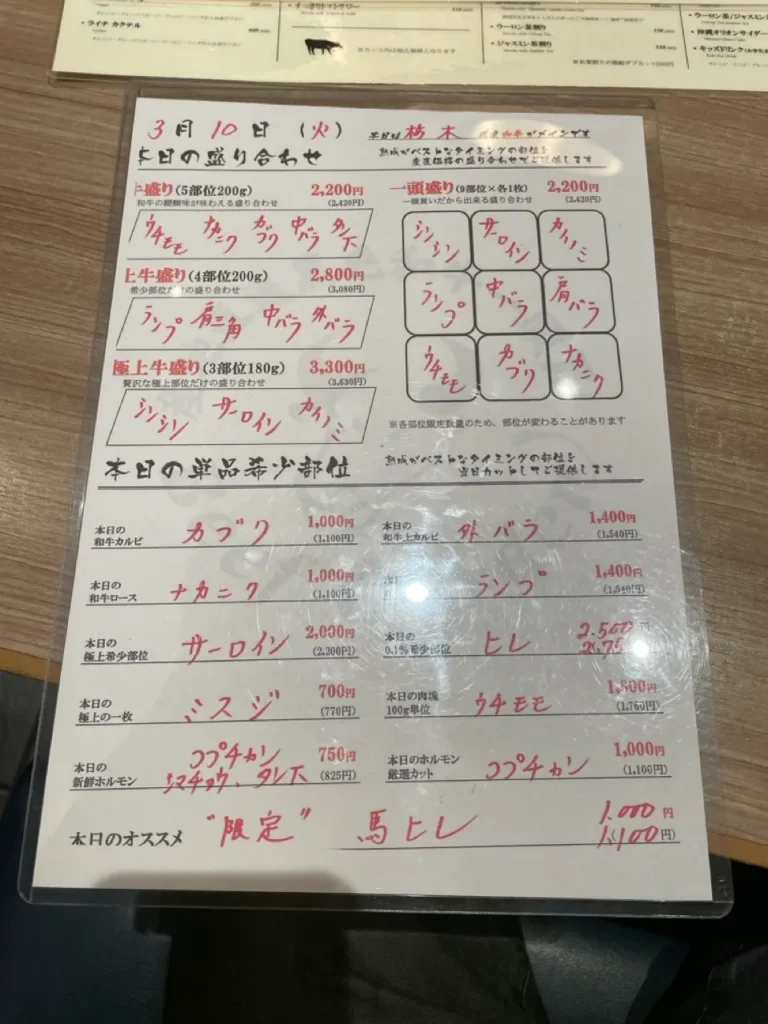 ライチ カクテル
すっきりトマトサワー
ウーロン茶割り
ジャスミン茶割り
ウーロン茶/ジャスミン
沖縄オリオンサイダー
3月10日(火)
本日は 栃木 和牛がメインです
本日の盛り合わせ
熟成がベストなタイミングの部位を
産直価格の盛り合わせでご提供します
牛盛り(5部位200g) 2,200円
和牛の醍醐味が味わえる盛り合わせ (2,420円)
ウチモモ ナカニク カブリ 中バラ タン下
上牛盛り(4部位200g) 2,800円
希少部位だけの盛り合わせ (3,080円)
ランプ 肩三角 中バラ 外バラ
極上牛盛り(3部位180g) 3,300円
贅沢な極上部位だけの盛り合わせ (3,630円)
シンシン サーロイン カイノミ
一頭盛り(9部位×各1枚) 2,200円
一頭買いだから出来る盛り合わせ (2,420円)
シンシン サーロイン カイノミ
ランプ 中バラ 肩バラ
ウチモモ カブリ ナカニク
※各部位限定数量のため、部位が変わることがあります
本日の単品希少部位
熟成がベストなタイミングの部位を
当日カットしてご提供します
本日の
和牛カルビ カブリ 1,000円
(1,100円)
本日の
和牛上カルビ 外バラ 1,400円
(1,540円)
本日の
和牛ロース ナカニク 1,000円
(1,100円)
ランプ 1,400円
(1,540円)
本日の
極上希少部位 サーロイン 2,000円
(2,200円)
本日の
0.1%希少部位 ヒレ 2.500円
本日の
極上の一枚 ミスジ 700円
(770円)
本日の肉塊
100g単位 ウチモモ 1,600円
(1,760円)
本日の
新鮮ホルモン コプチャン
シマチョウ、タン下 750円
(825円)
本日のホルモン
厳選カット コプチャン 1,000円
(1,100円)
本日のオススメ "限定" 馬ヒレ 1.000円
(1.100円)